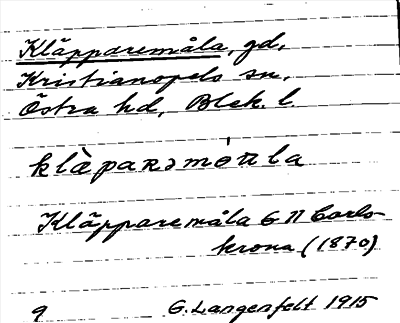 Kläpparemåla, gd,
Kristianopels sn,
Östra hd, Blek. l.
klàparəmóꞥla
Kläpparemåla G N Carls-
krona (1870)
G. Langenfelt 1915